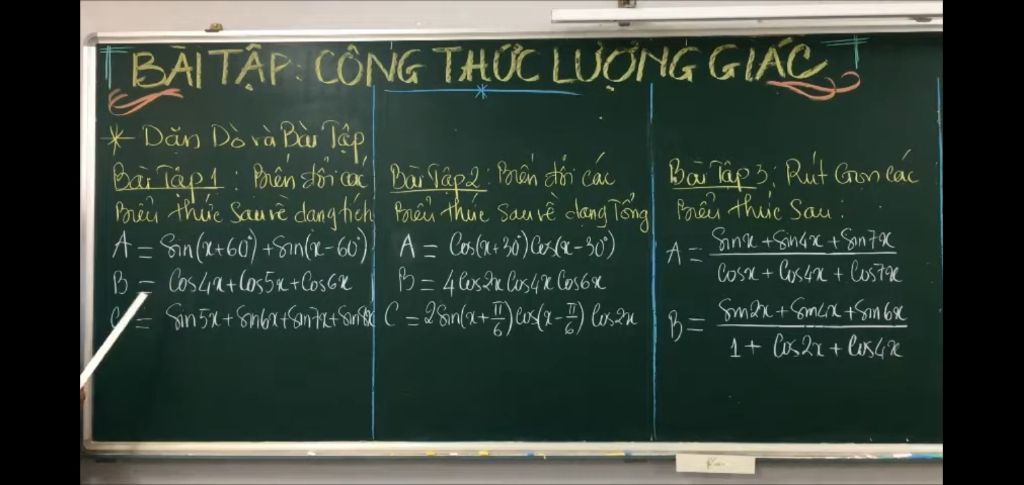 BÀI TẬP: CÔNG THỨC LƯỢNG GIÁC
* Dặn Dò và Bài Tập
Bài Tập 1: Biến đổi các
Biểu thức Sau về dạng tích
A = Sin(x+60°)+Sin(x-60°)
B = Cos4x+Cos5x+Cos6x
C = Sin5x+Sin6x+Sin7x+Sin8x
Bài Tập 2: Biến đổi các
Biểu thức Sau về dạng Tổng
A = Cos(x+30°)Cos(x-30°)
B = 4Cos2x Cos4x Cos6x
C = 2Sin(x+π/6)Cos(x-π/6) Cos2x
Bài Tập 3: Rút Gọn các
Biểu thức Sau:
A = (Sinx+Sin4x+Sin7x)/(Cosx+Cos4x+Cos7x)
B = (Sin2x+Sin4x+Sin6x)/(1+Cos2x+Cos4x)